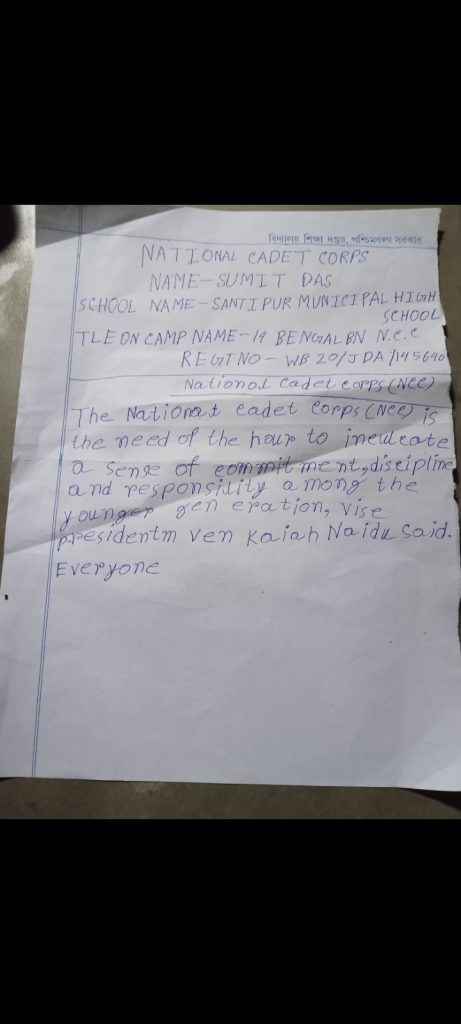 বিদ্যালয় শিক্ষা দপ্তর, পশ্চিমবঙ্গ সরকার
NATIONAL CADET CORPS
NAME-SUMIT DAS
SCHOOL NAME-SANTIPUR MUNICIPAL HIGH
SCHOOL
TLE ON CAMP NAME-19 BENGAL BN N.C.C
REGT NO- WB 20/JDA/145690
National Cadet Corps (NCC)
The National Cadet Corps (NCC) is
the need of the hour to inculcate
a sense of commitment, discipline
and responsidity among the
younger gen eration, vise
presidentm ven Kaiah Naidu said.
Everyone